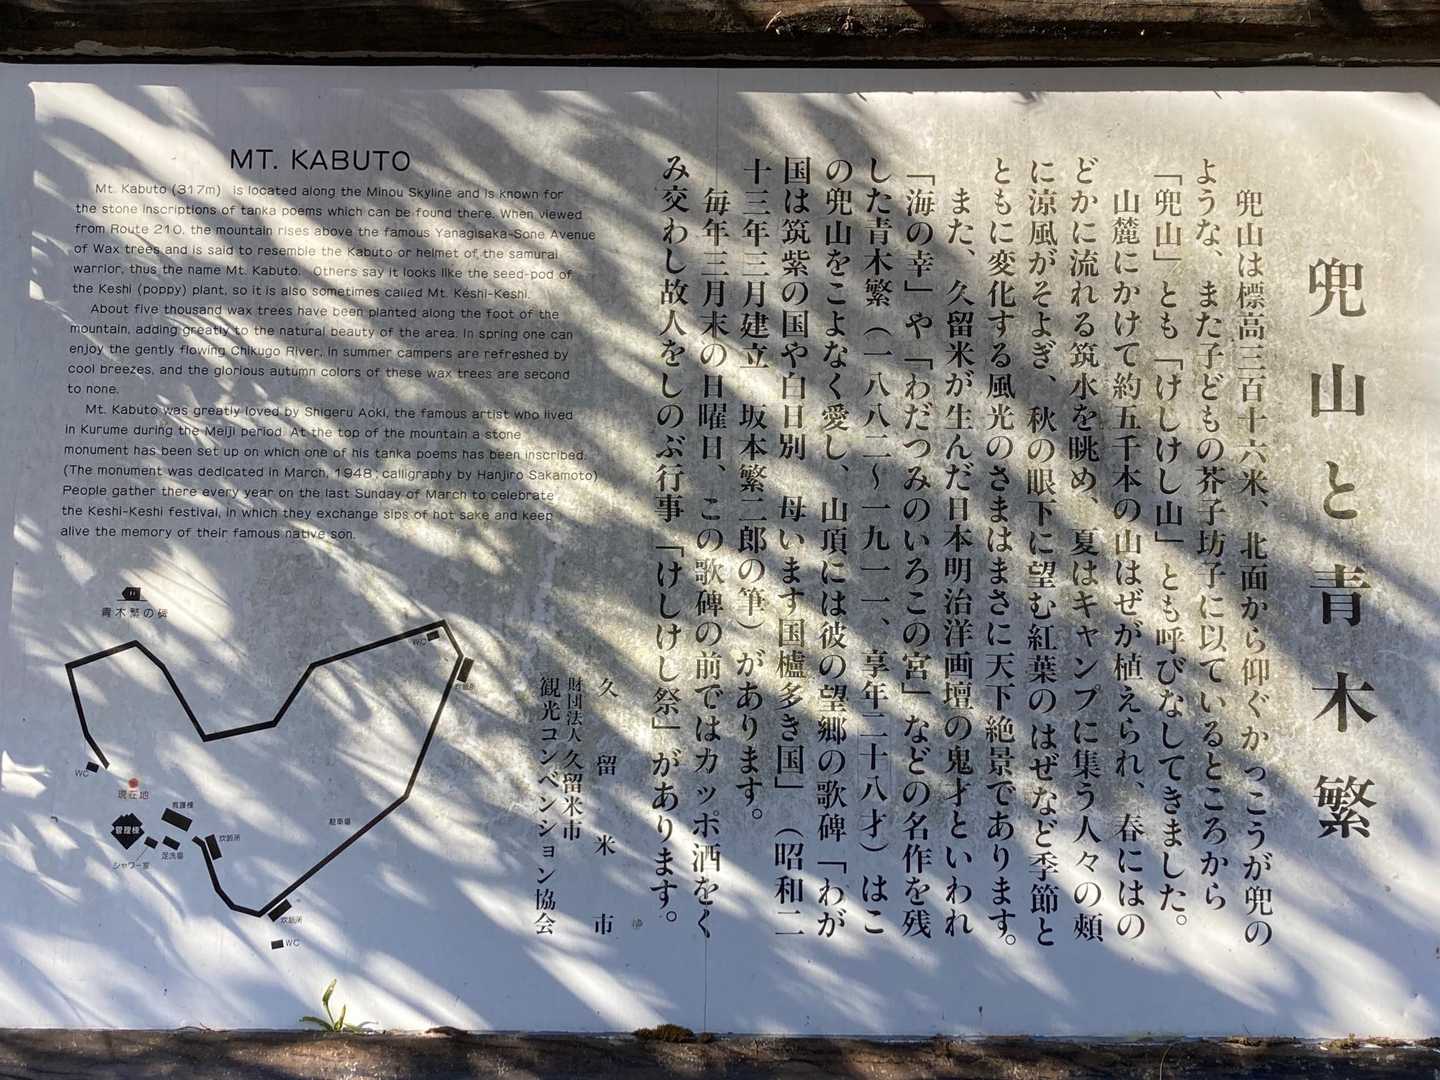 兜山と青木繁
兜山は標高三百十六米、北面から仰ぐかっこうが兜の
ような、また子どもの芥子坊子に以ているところから
「兜山」とも「けしけし山」とも呼びなしてきました。
山麓にかけて約五千本の山はぜが植えられ、春にはの
どかに流れる筑水を眺め、夏はキャンプに集う人々の頬
に涼風がそよぎ、秋の眼下に望む紅葉のはぜなど季節と
ともに変化する風光のさまはまさに天下絶景であります。
また、久留米が生んだ日本明治洋画壇の鬼才といわれ
「海の幸」や「わだつみのいろこの宮」などの名作を残
した青木繁（一八八二〜一九一一、享年二十八才）はこ
の兜山をこよなく愛し、山頂には彼の望郷の歌碑「わが
国は筑紫の国や白日別 母います国櫨多き国」（昭和二
十三年三月建立 坂本繁二郎の筆）があります。
毎年三月末の日曜日、この歌碑の前ではカッポ酒をく
み交わし故人をしのぶ行事「けしけし祭」があります。
久留米市
財団法人 久留米市
観光コンベンション協会
MT. KABUTO
Mt. Kabuto (317m) is located along the Minou Skyline and is known for
the stone inscriptions of tanka poems which can be found there. When viewed
from Route 210, the mountain rises above the famous Yanagisaka-Sone Avenue
of Wax trees and is said to resemble the Kabuto or helmet of the samurai
warrior, thus the name Mt. Kabuto. Others say it looks like the seed-pod of
the Keshi (poppy) plant, so it is also sometimes called Mt. Keshi-Keshi.
About five thousand wax trees have been planted along the foot of the
mountain, adding greatly to the natural beauty of the area. In spring one can
enjoy the gently flowing Chikugo River, in summer campers are refreshed by
cool breezes, and the glorious autumn colors of these wax trees are second
to none.
Mt. Kabuto was greatly loved by Shigeru Aoki, the famous artist who lived
in Kurume during the Meiji period. At the top of the mountain a stone
monument has been set up on which one of his tanka poems has been inscribed.
(The monument was dedicated in March, 1948; calligraphy by Hanjiro Sakamoto)
People gather there every year on the last Sunday of March to celebrate
the Keshi-Keshi festival, in which they exchange sips of hot sake and keep
alive the memory of their famous native son.
青木繁の碑
WC
炊飯所
WC
現在地
管理棟
足洗場
シャワー室
炊飯所
駐車場
炊飯所
WC